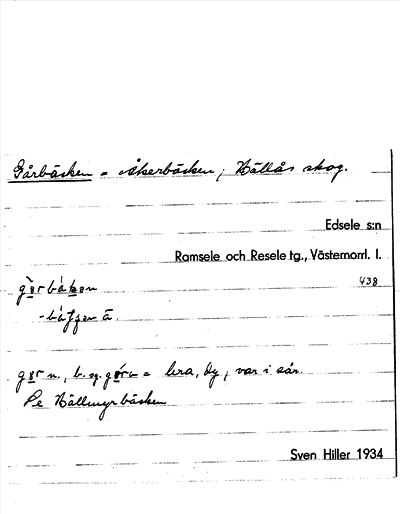 Gårbäcken = Åkerbäcken, Hällås skog.
Edsele s:n
Ramsele och Resele tg., Västernorrl. l.
438
gɵrbäkən
-bäʃʃen ä.
gɵr n., b. sg. gɵrə = lera, dy, var i sår.
Pe Hällmyrbäcken
Sven Hiller 1934